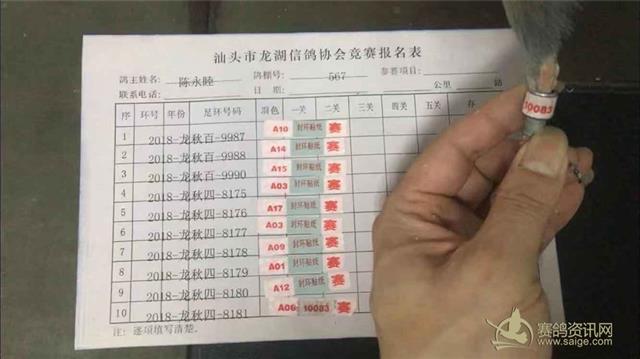 汕头市龙湖信鸽协会竞赛报名表
鸽主姓名: 陈永睦 鸽棚号 567 参赛项目:
联系电话: 日期: 公里 站
序 环号 年份 足环号码 项色 一关 二关 三关 四关 五关 存
1 2018-龙秋百-9987 A10 封环贴纸 赛
2 2018-龙秋百-9988 A14 封环贴纸 赛
3 2018-龙秋百-9990 A15 封环贴纸 赛
4 2018-龙秋四-8175 A03 封环贴纸 赛
5 2018-龙秋四-8176 A17 封环贴纸 赛
6 2018-龙秋四-8177 A03 封环贴纸 赛
7 2018-龙秋四-8178 A09 封环贴纸 赛
8 2018-龙秋四-8179 A01 封环贴纸 赛
9 2018-龙秋四-8180 A12 封环贴纸 赛
10 2018-龙秋四-8181 A06 10083 赛
注: 逐项填写清楚。
10083
赛鸽资讯网
www.saige.com